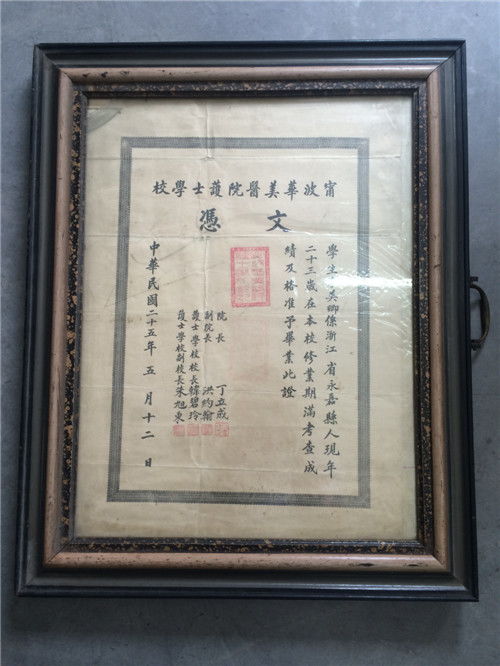 甯波華美醫院護士學校
文憑
學生 美卿係浙江省永嘉縣人現年
二十三歲在本校修業期滿考查成
績及格准予畢業此證
院長 丁立成
副院長 洪約翰
護士學校校長 韓碧玲
護士學校副校長 朱旭東
中華民國二十五年五月十二日